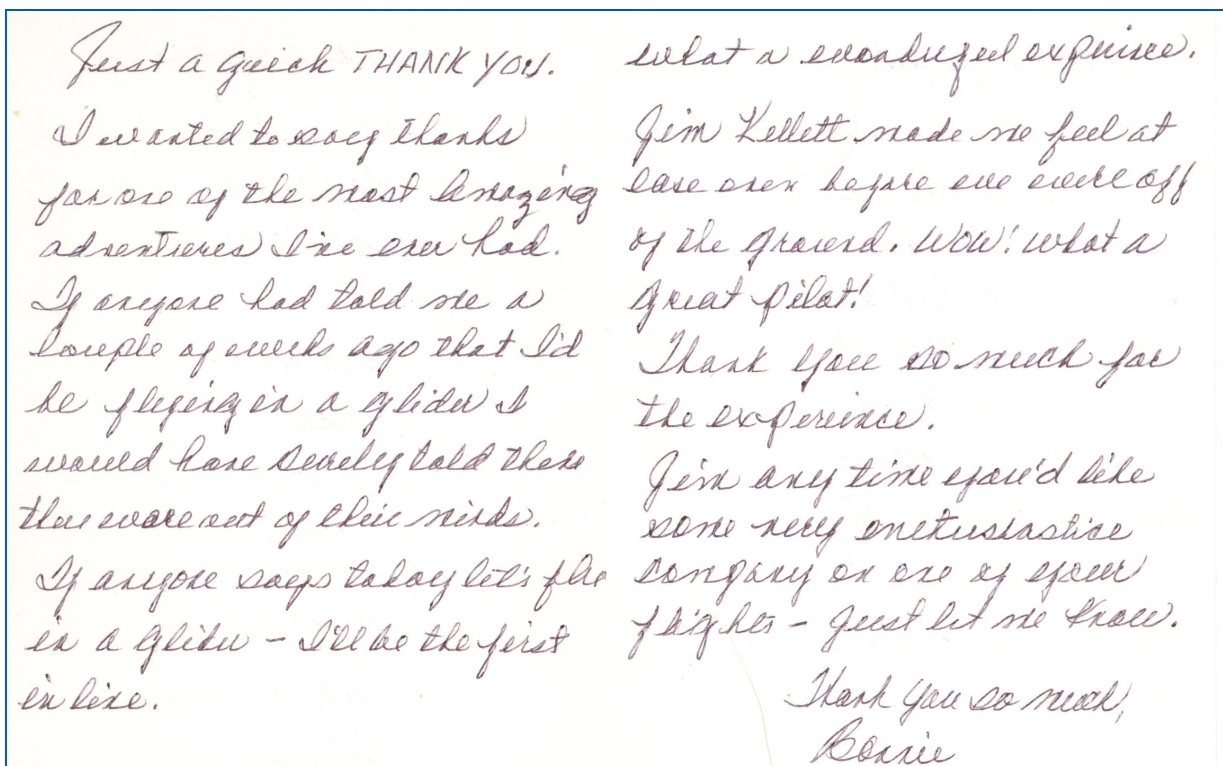 Just a quick THANK YOU.
I wanted to say thanks
for one of the most amazing
adventures I've ever had.
If anyone had told me a
couple of weeks ago that I'd
be flying in a glider I
would have surely told them
they were out of their minds.
If anyone says today let's fly
in a glider – I'll be the first
in line.
what a wonderful experience.
Jim Kellett made me feel at
ease even before we were off
of the ground. WOW! What a
great pilot!
Thank you so much for
the experience.
Jim any time you'd like
some very enthusiastic
company on one of your
flights – just let me know.
Thank you so much,
Bonnie